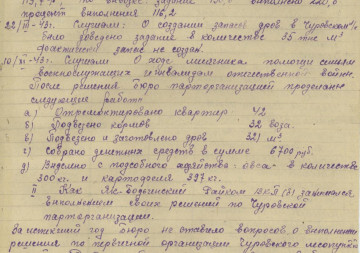 процент выполнения 116,2
22/III-43г. Слушали: О создании запаса дров в Чуровском
было доведено задание в количестве 35 тыс м³
фактически запас не создан.
10/XI-43г. Слушали О ходе месячника помощи семьям
военнослужащих и инвалидам отечественной войны
После решения бюро парторганизацией проделано
следующая работа
а) Отремонтировано квартир 42
б) Подвезено кормов 32 воза.
в) Подвезено и заготовлено дров 321 м³
г) Собрано денежных средств в сумме 6700 руб.
д) Выделено с подсобного хозяйства: овса - в количестве
300 кг. и картофеля 397 кг.
II Как Райком ВКП(б) занимался
выполнением своих решений по Чуровской
парторганизации.
За истекший год бюро не ставило вопросов о выполнении
решения по первичной организации Чуровского леспункта